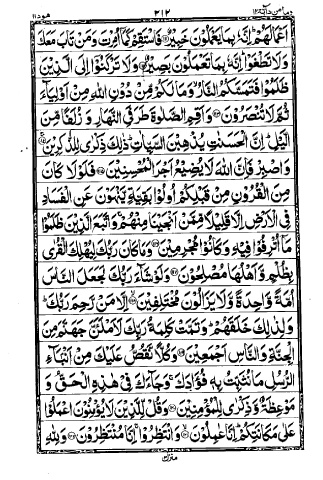 ومامن دآبة ١٢ ٢١٢ هود ١١
اَعْمَالَهُمْ اِنَّهٗ بِمَا يَعْمَلُوْنَ خَبِيْرٌ فَاسْتَقِمْ كَمَآ اُمِرْتَ وَمَنْ تَابَ مَعَكَ
وَلَا تَطْغَوْا اِنَّهٗ بِمَا تَعْمَلُوْنَ بَصِيْرٌ وَلَا تَرْكَنُوْٓا اِلَى الَّذِيْنَ
ظَلَمُوْا فَتَمَسَّكُمُ النَّارُ وَمَا لَكُمْ مِّنْ دُوْنِ اللّٰهِ مِنْ اَوْلِيَآءَ
ثُمَّ لَا تُنْصَرُوْنَ وَاَقِمِ الصَّلٰوةَ طَرَفَيِ النَّهَارِ وَزُلَفًا مِّنَ
الَّيْلِ اِنَّ الْحَسَنٰتِ يُذْهِبْنَ السَّيِّاٰتِ ذٰلِكَ ذِكْرٰى لِلذّٰكِرِيْنَ
وَاصْبِرْ فَاِنَّ اللّٰهَ لَا يُضِيْعُ اَجْرَ الْمُحْسِنِيْنَ فَلَوْلَا كَانَ
مِنَ الْقُرُوْنِ مِنْ قَبْلِكُمْ اُولُوْا بَقِيَّةٍ يَّنْهَوْنَ عَنِ الْفَسَادِ
فِي الْاَرْضِ اِلَّا قَلِيْلًا مِّمَّنْ اَنْجَيْنَا مِنْهُمْ وَاتَّبَعَ الَّذِيْنَ ظَلَمُوْا
مَآ اُتْرِفُوْا فِيْهِ وَكَانُوْا مُجْرِمِيْنَ وَمَا كَانَ رَبُّكَ لِيُهْلِكَ الْقُرٰى
بِظُلْمٍ وَّاَهْلُهَا مُصْلِحُوْنَ وَلَوْ شَآءَ رَبُّكَ لَجَعَلَ النَّاسَ
اُمَّةً وَّاحِدَةً وَّلَا يَزَالُوْنَ مُخْتَلِفِيْنَ اِلَّا مَنْ رَّحِمَ رَبُّكَ
وَلِذٰلِكَ خَلَقَهُمْ وَتَمَّتْ كَلِمَةُ رَبِّكَ لَاَمْلَئَنَّ جَهَنَّمَ مِنَ
الْجِنَّةِ وَالنَّاسِ اَجْمَعِيْنَ وَكُلًّا نَّقُصُّ عَلَيْكَ مِنْ اَنْۢبَآءِ
الرُّسُلِ مَا نُثَبِّتُ بِهٖ فُؤَادَكَ وَجَآءَكَ فِيْ هٰذِهِ الْحَقُّ وَ
مَوْعِظَةٌ وَّذِكْرٰى لِلْمُؤْمِنِيْنَ وَقُلْ لِّلَّذِيْنَ لَا يُؤْمِنُوْنَ اعْمَلُوْا
عَلٰى مَكَانَتِكُمْ اِنَّا عٰمِلُوْنَ وَانْتَظِرُوْا اِنَّا مُنْتَظِرُوْنَ وَلِلّٰهِ
منزل٣